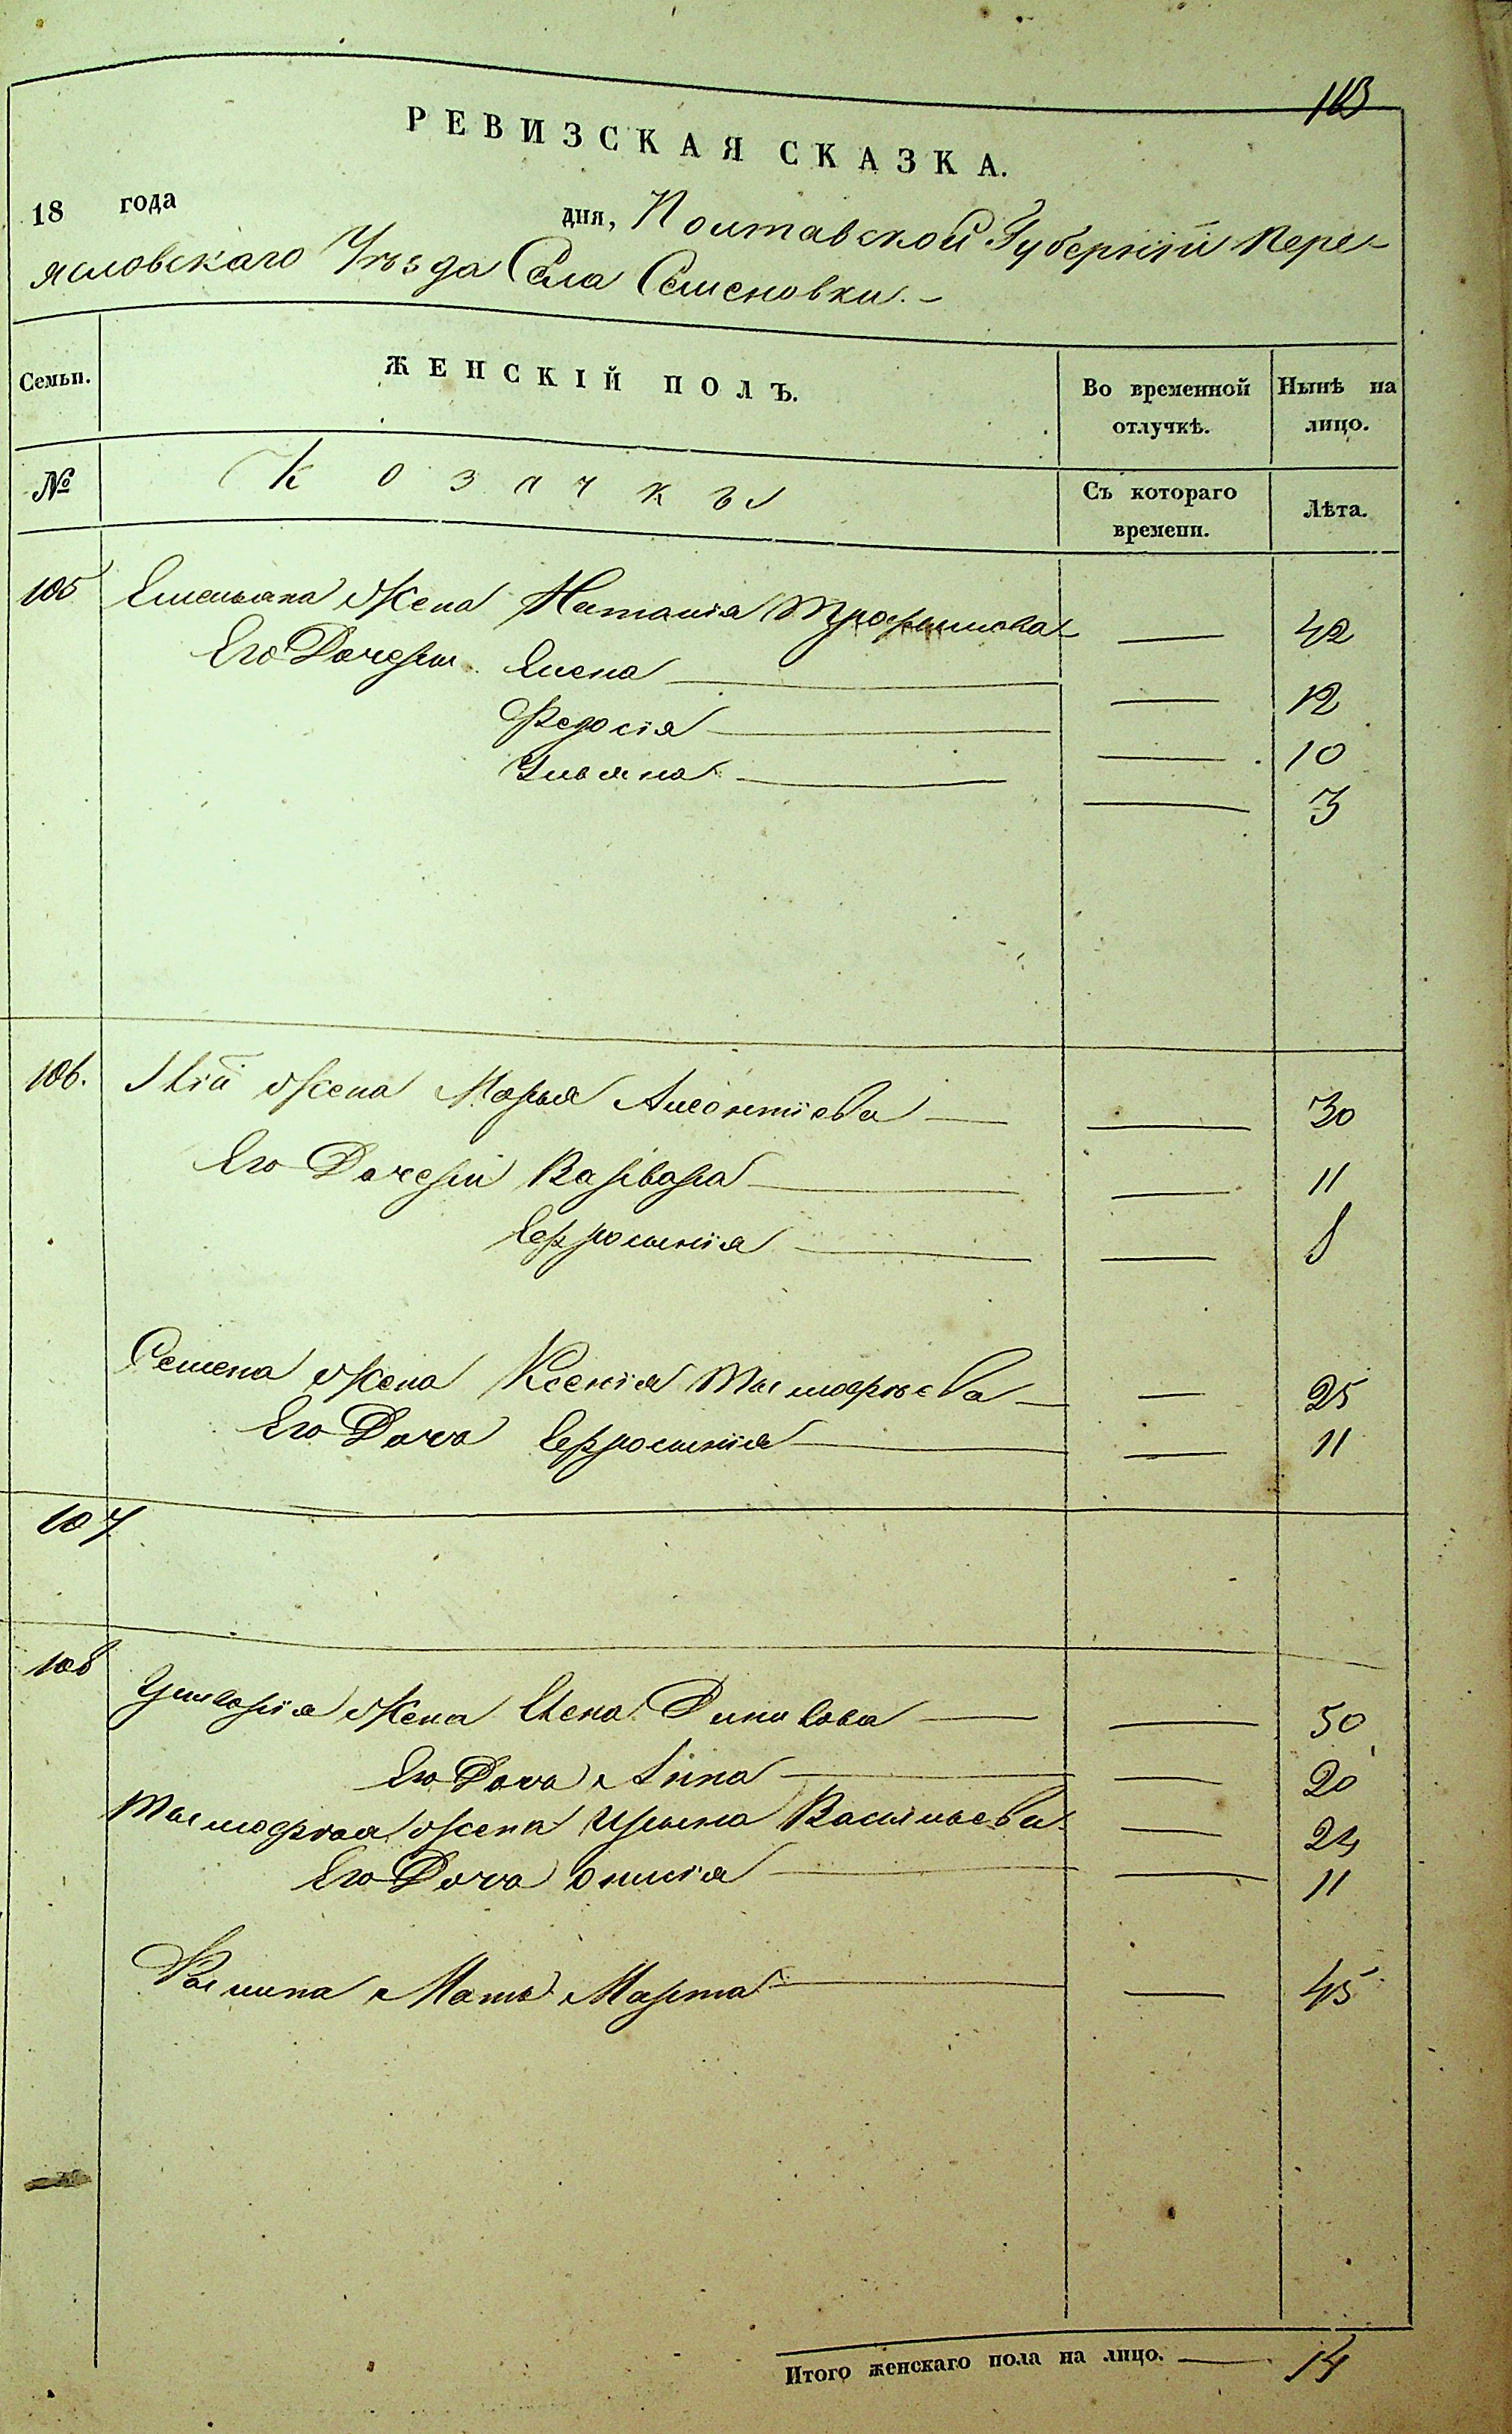 113
РЕВИЗСКАЯ СКАЗКА.
18 года дня, Полтавской Губерніи Пере-
яславскаго Уѣзда Села Семеновки. -
Семьи. ЖЕНСКІЙ ПОЛЪ. Во временной отлучкѣ. Нынѣ на лицо.
№ Козачкы Съ котораго времени. Лѣта.
105 Емельяна Жена Наталія Трофимова — 42
Его Дочери Елена — 12
Федосія — 10
Ульяна — 3
106. Жена Марья Леонтіева — 30
Его Дочери Варвара — 11
Ефросинія — 8
Семена Жена Ксенія Тимофѣева — 25
Его Дочь Ефросинія — 11
107
108 Григорія Жена Елена — 50
Его Дочь Анна — 20
Тимофѣя Жена Ирина Васильева — 24
Его Дочь — 11
Мать Марта — 45
Итого женскаго пола на лицо. — 14